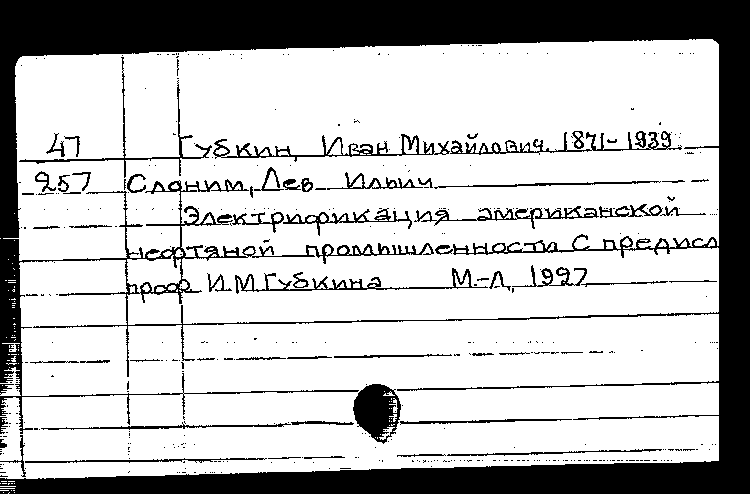 47 Губкин, Иван Михайлович. 1871-1939.
257 Слоним, Лев Ильич
Электрификация американской
нефтяной промышленности С предисл
проф И.М.Губкина М.-Л, 1927